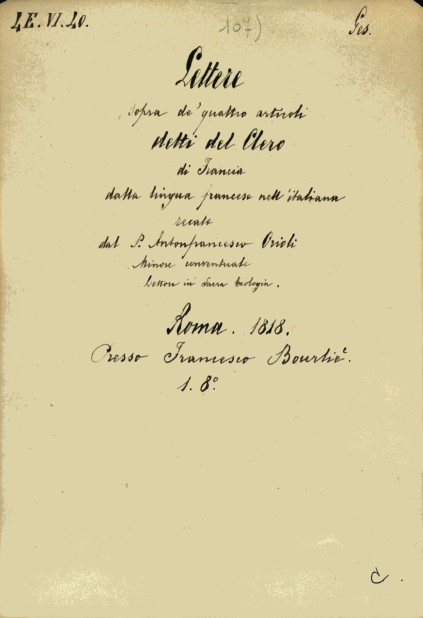 4E.VI.40.
107)
Ges.
Lettere
sopra de' quattro articoli
detti del Clero
di Francia
dalla lingua francese nell'italiana
recate
dal P. Antonfrancesco Orioli
Minore conventuale
Lettore in Sacra Teologia.
Roma. 1818.
Presso Francesco Bourlié.
1. 8°.
C.